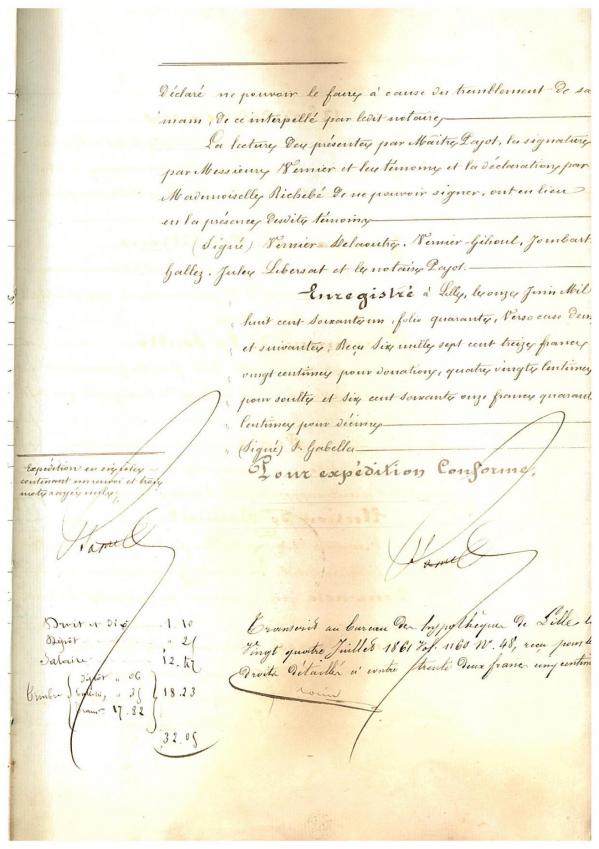 Déclaré ne pouvoir le faire à cause du tremblement de sa
main, de ce interpellé par ledit notaire
La lecture des présentes par Maître Pajot, la signature
par Messieurs Vernier et les témoins et la déclaration par
Mademoiselle Richebé de ne pouvoir signer, ont eu lieu
en la présence desdits témoins
(Signé) Vernier Delaoutre, Vernier-Gihoul, Jombart
Hallez, Jules Libersat et le notaire Pajot.
Enregistré à Lille, le onze Juin Mil
huit cent soixante un, folio quarante, Verso case deux
et suivantes, Reçu Six mille sept cent treize francs
vingt centimes pour donation, quatre vingts Centimes
pour soulte et six cent soixante onze francs quarante
Centimes pour décime
(Signé) Gabelle
Pour expédition Conforme.
Expédition en six rôles
contenant un renvoi et trois
mots rayés nuls
Droit et dix 1.10
Dépôt " 25
Salaire 12.47
Timbre dépôt " 06
" 35 18.23
17.82
32.05
Transcrit au bureau des hypothèques de Lille le
Vingt quatre Juillet 1861 Vol. 1160 N°. 48, reçu pour
droits détaillés ci contre trente deux francs cinq centimes